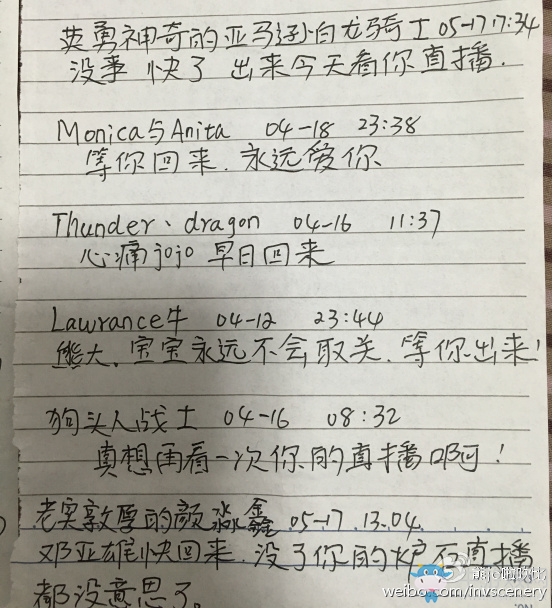 英勇神奇的亚马逊白龙骑士 05-17 17:34
没事 快了 出来今天看你直播.
Monica与Anita 04-18 23:38
等你回来.永远爱你
Thunder、dragon 04-16 11:37
心痛jojo 早日回来
Lawrance牛 04-12 23:44
熊大.宝宝永远不会取关.等你出来!
狗头人战士 04-16 08:32
真想再看一次你的直播啊!
老实敦厚的颜淼鑫 05-17 13.04.
邓亚雄快回来.没了你的炉石直播
都没意思了。
weibo.com/invscenery